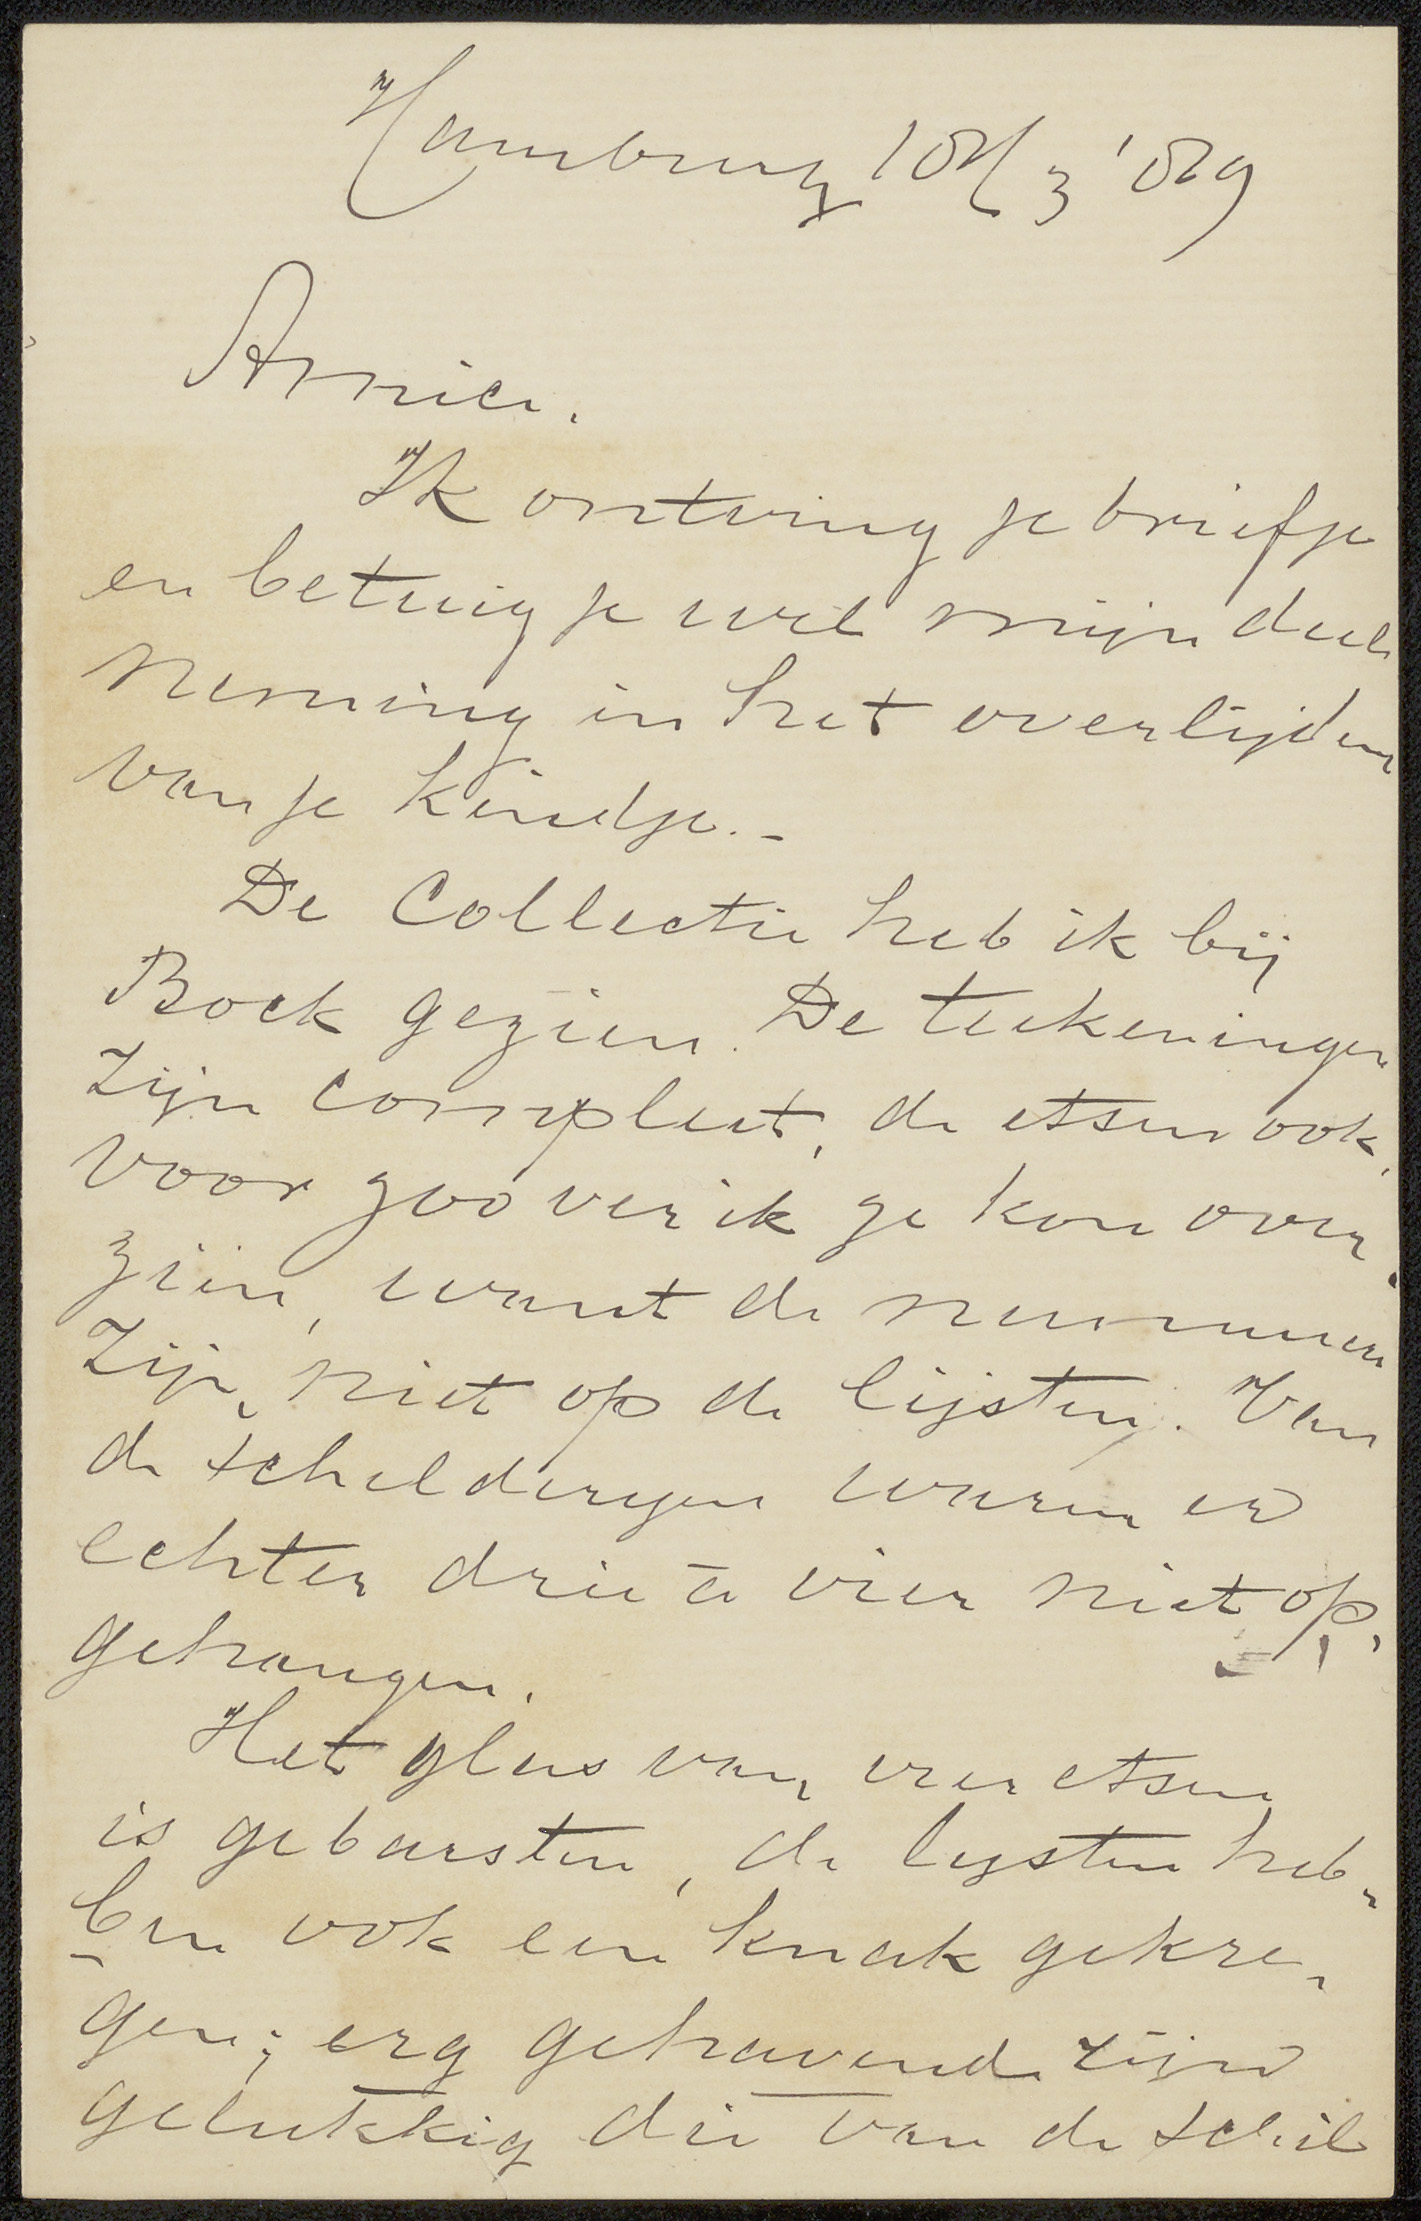 Hamburg 18/3 '89
Amice.
Ik ontving je briefje
en betuig je wel mijn deel
neming in het overlijden
van je kindje. -
De Collectie heb ik bij
Bock gezien. De teekeningen
zijn compleet, de etsen ook,
voor zoo ver ik ze kon over
zien, want de nummers
zijn niet op de lijsten. Van
de schilderyen waren er
echter drie à vier niet op,
gehangen.
Het glas van vier etsen
is gebarsten, de lysten heb-
ben ook een knak gekre-
gen; erg gehavend zijn
gelukkig die van de schil